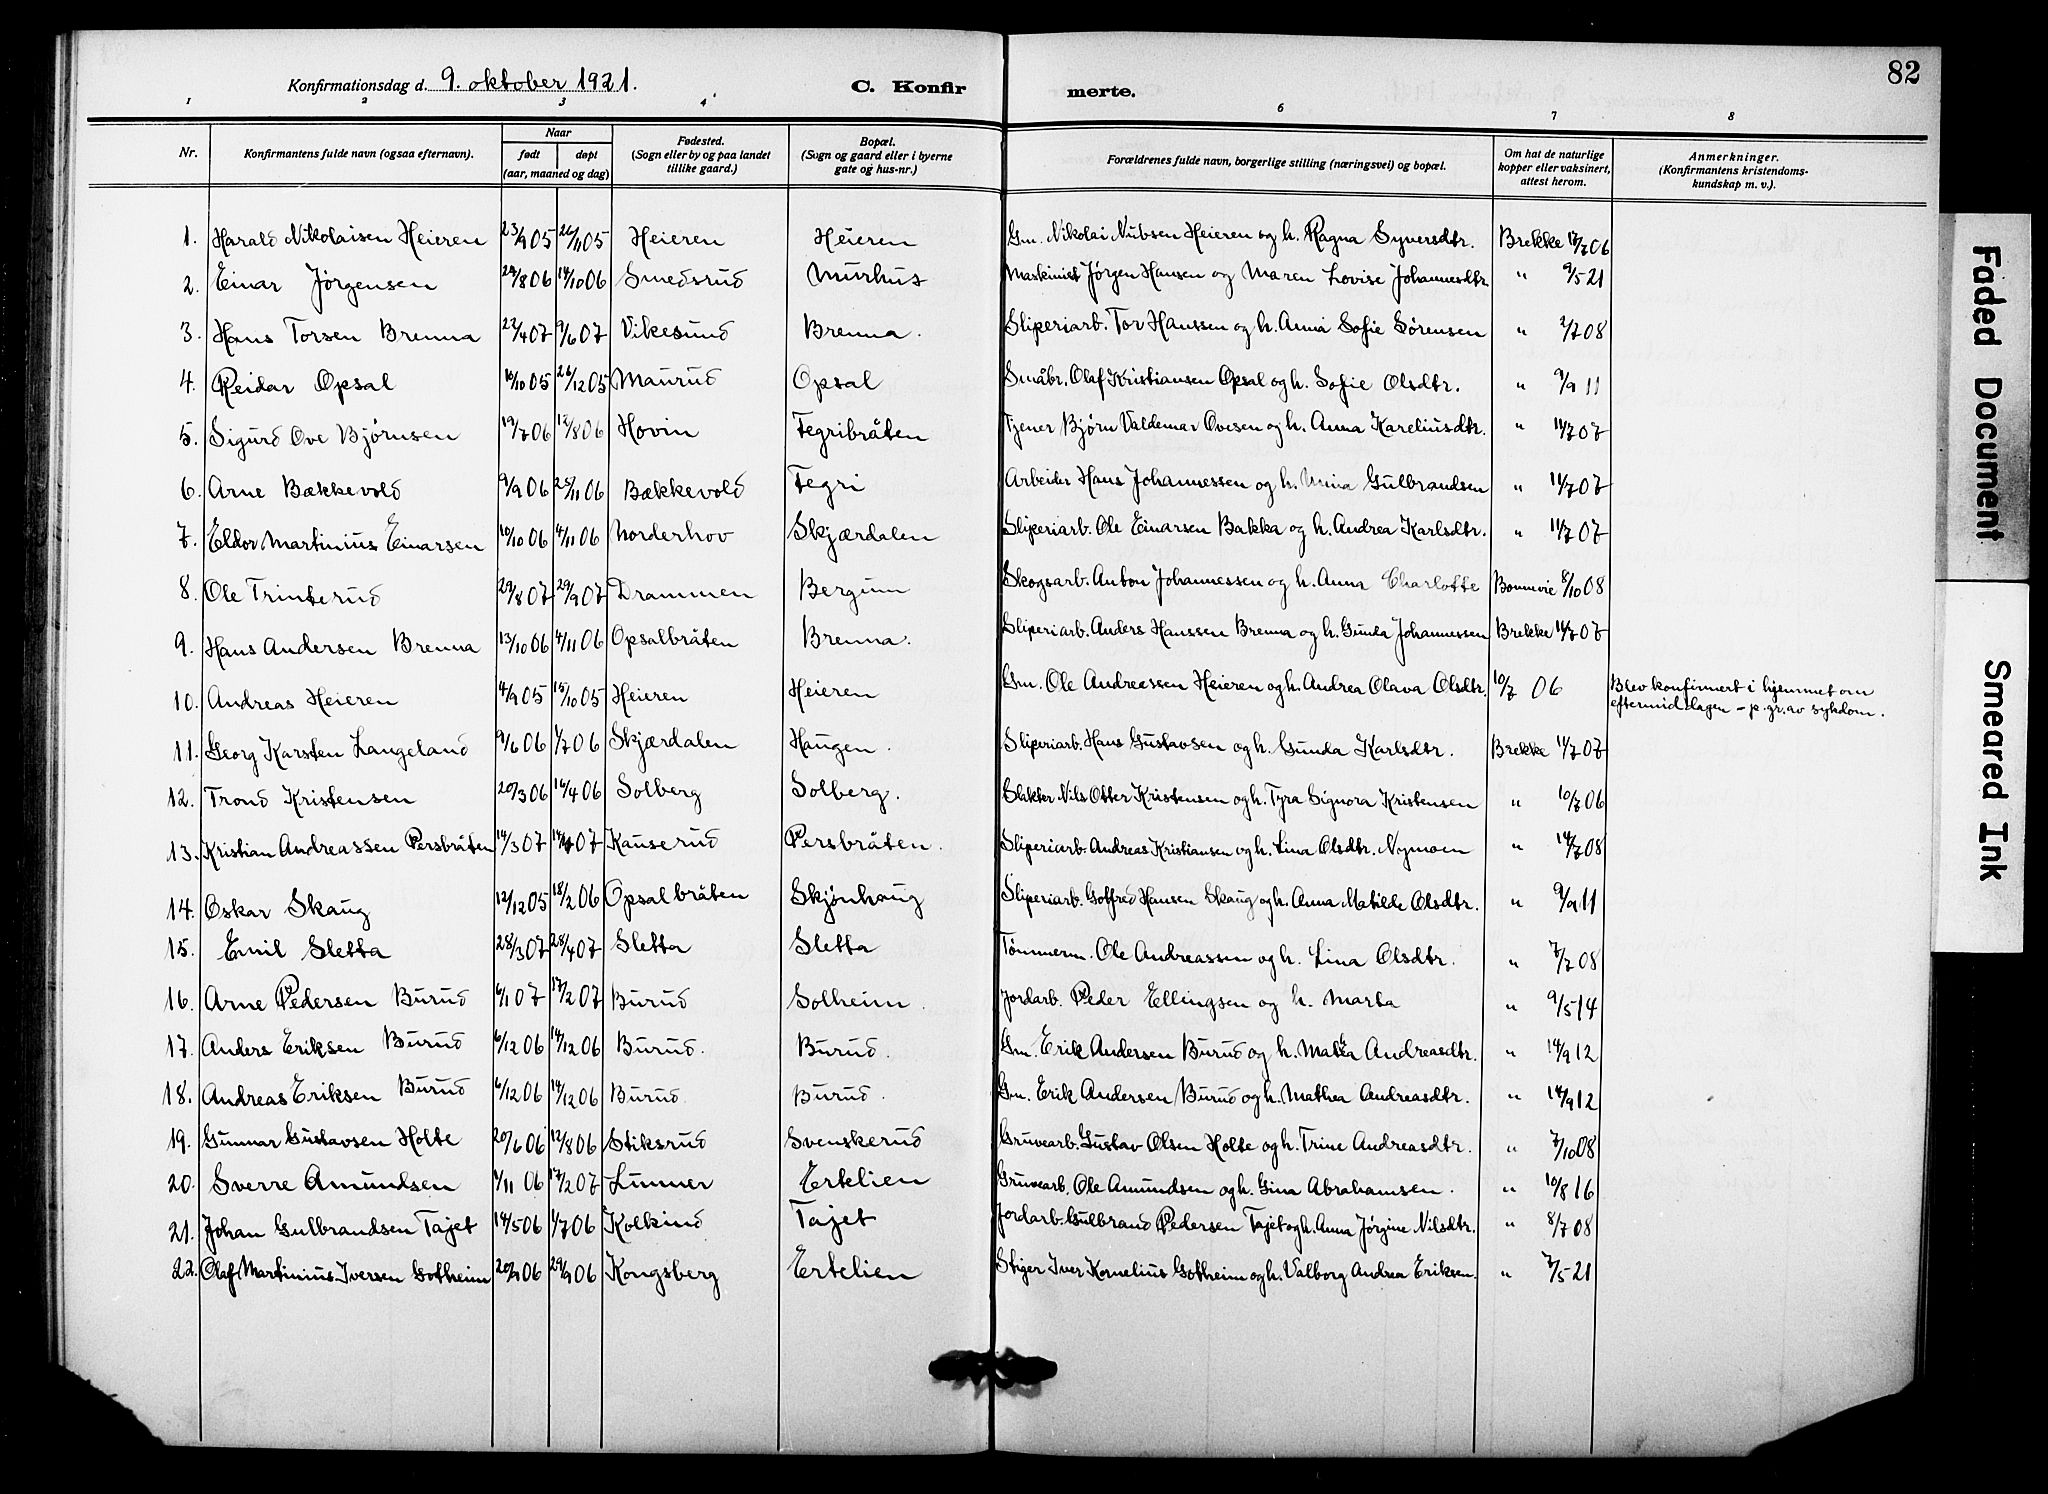 82
Konfirmationsdag d. 9. oktober 1921. C. Konfirmerte.
1 2 3 4 6 7 8
Nr. Konfirmantens fulde navn (ogsaa efternavn). Naar født døpt (aar, maaned og dag) Fødested. (Sogn eller by og paa landet tillike gaard.) Bopæl. (Sogn og gaard eller i byerne gate og hus-nr.) Forældrenes fulde navn, borgerlige stilling (næringsvei) og bopæl. Om hat de naturlige kopper eller vaksinert, attest herom. Anmerkninger. (Konfirmantens kristendoms-kundskap m. v.).
1. Harald Nikolaisen Heieren 23/9 05 26/11 05 Heieren Heieren Gm. Nikolai Nubsen Heieren og h. Ragna Syversdtr. Brekke 17/7 06
2. Einar Jørgensen 24/8 06 14/10 06 Smedsrud Murhus Maskinist Jørgen Hansen og Maren Lovise Johannesdtr. " 9/5 21
3. Hans Torsen Brenna 22/4 07 9/6 07 Vikesund Brenna. Sliperiarb. Tor Hanssen og h. Anna Sofie Sørensen " 2/7 08
4. Reidar Opsal 16/10 05 26/12 05 Maurud Opsal Småbr. Olaf Kristiansen Opsal og h. Sofie Olsdtr. " 9/9 11
5. Sigurd Ove Bjørnsen 19/7 06 12/8 06 Hovin Tegribråten Tjener Bjørn Valdemar Ovesen og h. Anna Kareliusdtr. " 11/7 07
6. Arne Bækkevold 9/9 06 25/11 06 Bækkevold Tegri Arbeider Hans Johannessen og h. Mina Gulbrandsen " 11/7 07
7. Eldor Martinius Einarsen 10/10 06 4/11 06 Norderhov Skjærdalen Sliperiarb. Ole Einarsen Bakka og h. Andrea Karlsdtr. " 11/7 07
8. Ole Trinterud 29/8 07 29/9 07 Drammen Bergum Skogsarb. Anton Johannessen og h. Anna Charlotte 8/10 08
9. Hans Andersen Brenna 13/10 06 4/11 06 Opsalbråten Brenna. Sliperiarb. Anders Hanssen Brenna og h. Gunda Johannessen Brekke 11/7 07
10. Andreas Heieren 4/9 05 15/10 05 Heieren Heieren Gm. Ole Andreassen Heieren og h. Andrea Olava Olsdtr. 10/7 06 Blev konfirmert i hjemmet om
eftermiddagen – p. gr. av sykdom.
11. Georg Karsten Langeland 9/6 06 1/7 06 Skjærdalen Haugen. Sliperiarb. Hans Gustavsen og h. Gunda Karlsdtr. Brekke 11/7 07
12. Trond Kristensen 20/3 06 16/4 06 Solberg Solberg. Slakter Nils Otter Kristensen og h. Tyra Signora Kristensen " 10/7 06
13. Kristian Andreassen Persbråten 14/3 07 07 Kauserud Persbråten. Sliperiarb. Andreas Kristiansen og h. Lina Olsdtr. Nymoen " 14/7 08
14. Oskar Skaug 12/12 05 18/2 06 Opsalbråten Skjønhaug Sliperiarb. Gotfred Hansen Skaug og h. Anna Matilde Olsdtr. " 9/9 11
15. Emil Sletta 28/3 07 28/4 07 Sletta Sletta Tømmerm. Ole Andreassen og h. Lina Olsdtr. " 7/7 08
16. Arne Pedersen Burud 6/1 07 17/2 07 Burud Solheim. Jordarb. Peder Ellingsen og h. Marta " 9/5 14
17. Anders Eriksen Burud 6/12 06 14/12 06 Burud. Burud. Gm. Erik Andersen Burud og h. Matea Andreasdtr. " 14/9 12
18. Andreas Eriksen Burud 6/12 06 14/12 06 Burud Burud. Gm. Erik Andersen Burud og h. Mathea Andreasdtr. " 14/9 12
19. Gunnar Gustavsen Holte 20/6 06 12/8 06 Stiksrud Svenskerud Gruvearb. Gustav Olsen Holte og h. Trine Andreasdtr. " 7/10 08
20. Sverre Amundsen 1/11 06 17/2 07 Lunner Ertelien Gruvearb. Ole Amundsen og h. Gina Abrahamsen. " 10/8 16
21. Johan Gulbrandsen Tajet 14/5 06 1/7 06 Kolkind Tajet Jordarb. Gulbrand Pedersen Tajet og h. Anna Jørgine Nilsdtr. " 8/7 08
22. Olaf Martinius Iversen Gotheim 20/9 06 29/9 06 Kongsberg Ertelien Stiger Iver Kornelius Gotheim og h. Valborg Andrea Eriksen. " 7/5 21
Faded Document
Smeared Ink